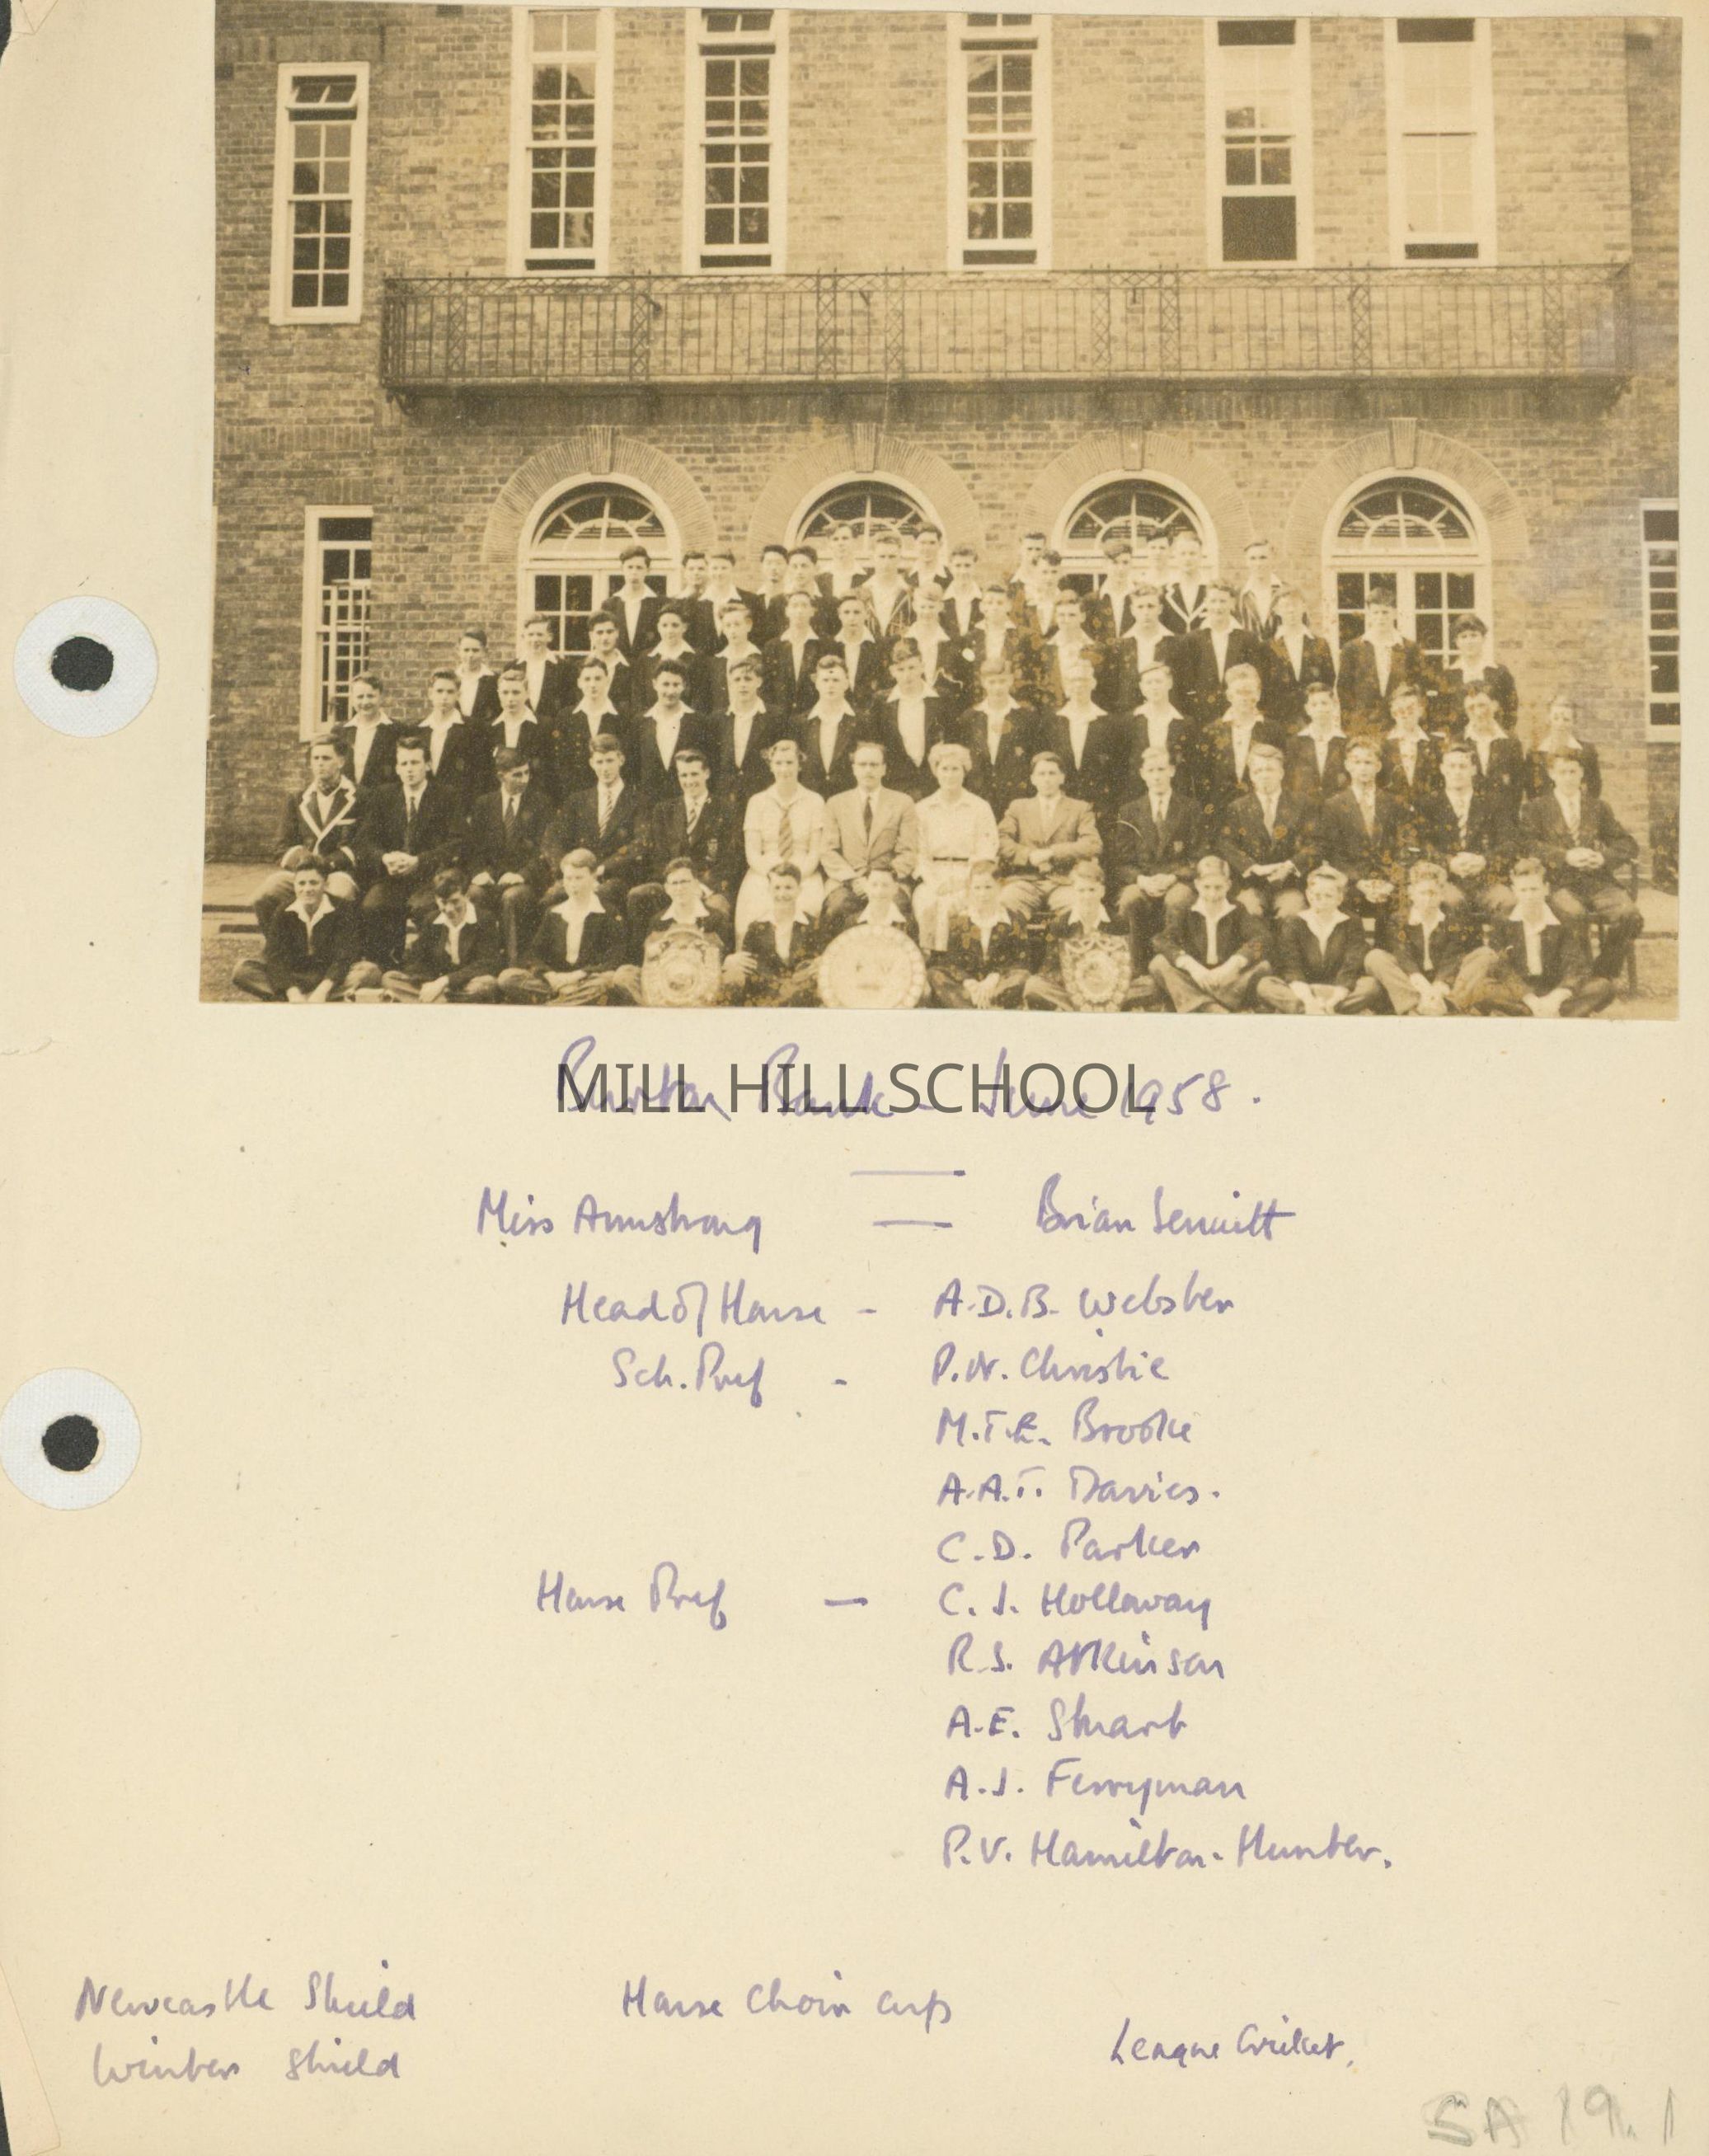 Burton Bank - June 1958.
MILL HILL SCHOOL
Miss Armstrong — Brian
Head of House - A.D.B. Webster
Sch. Pref - P.N. Christie
M.T.E. Brooke
A.A.T. Davies.
C.D. Parker
House Pref — C.J. Holloway
R.S. Atkinson
A.E. Stuart
A.J. Ferryman
P.V. Hamilton-Hunter.
Newcastle Shield House Choir Cup
Winter Shield League Cricket.
SA 19.1